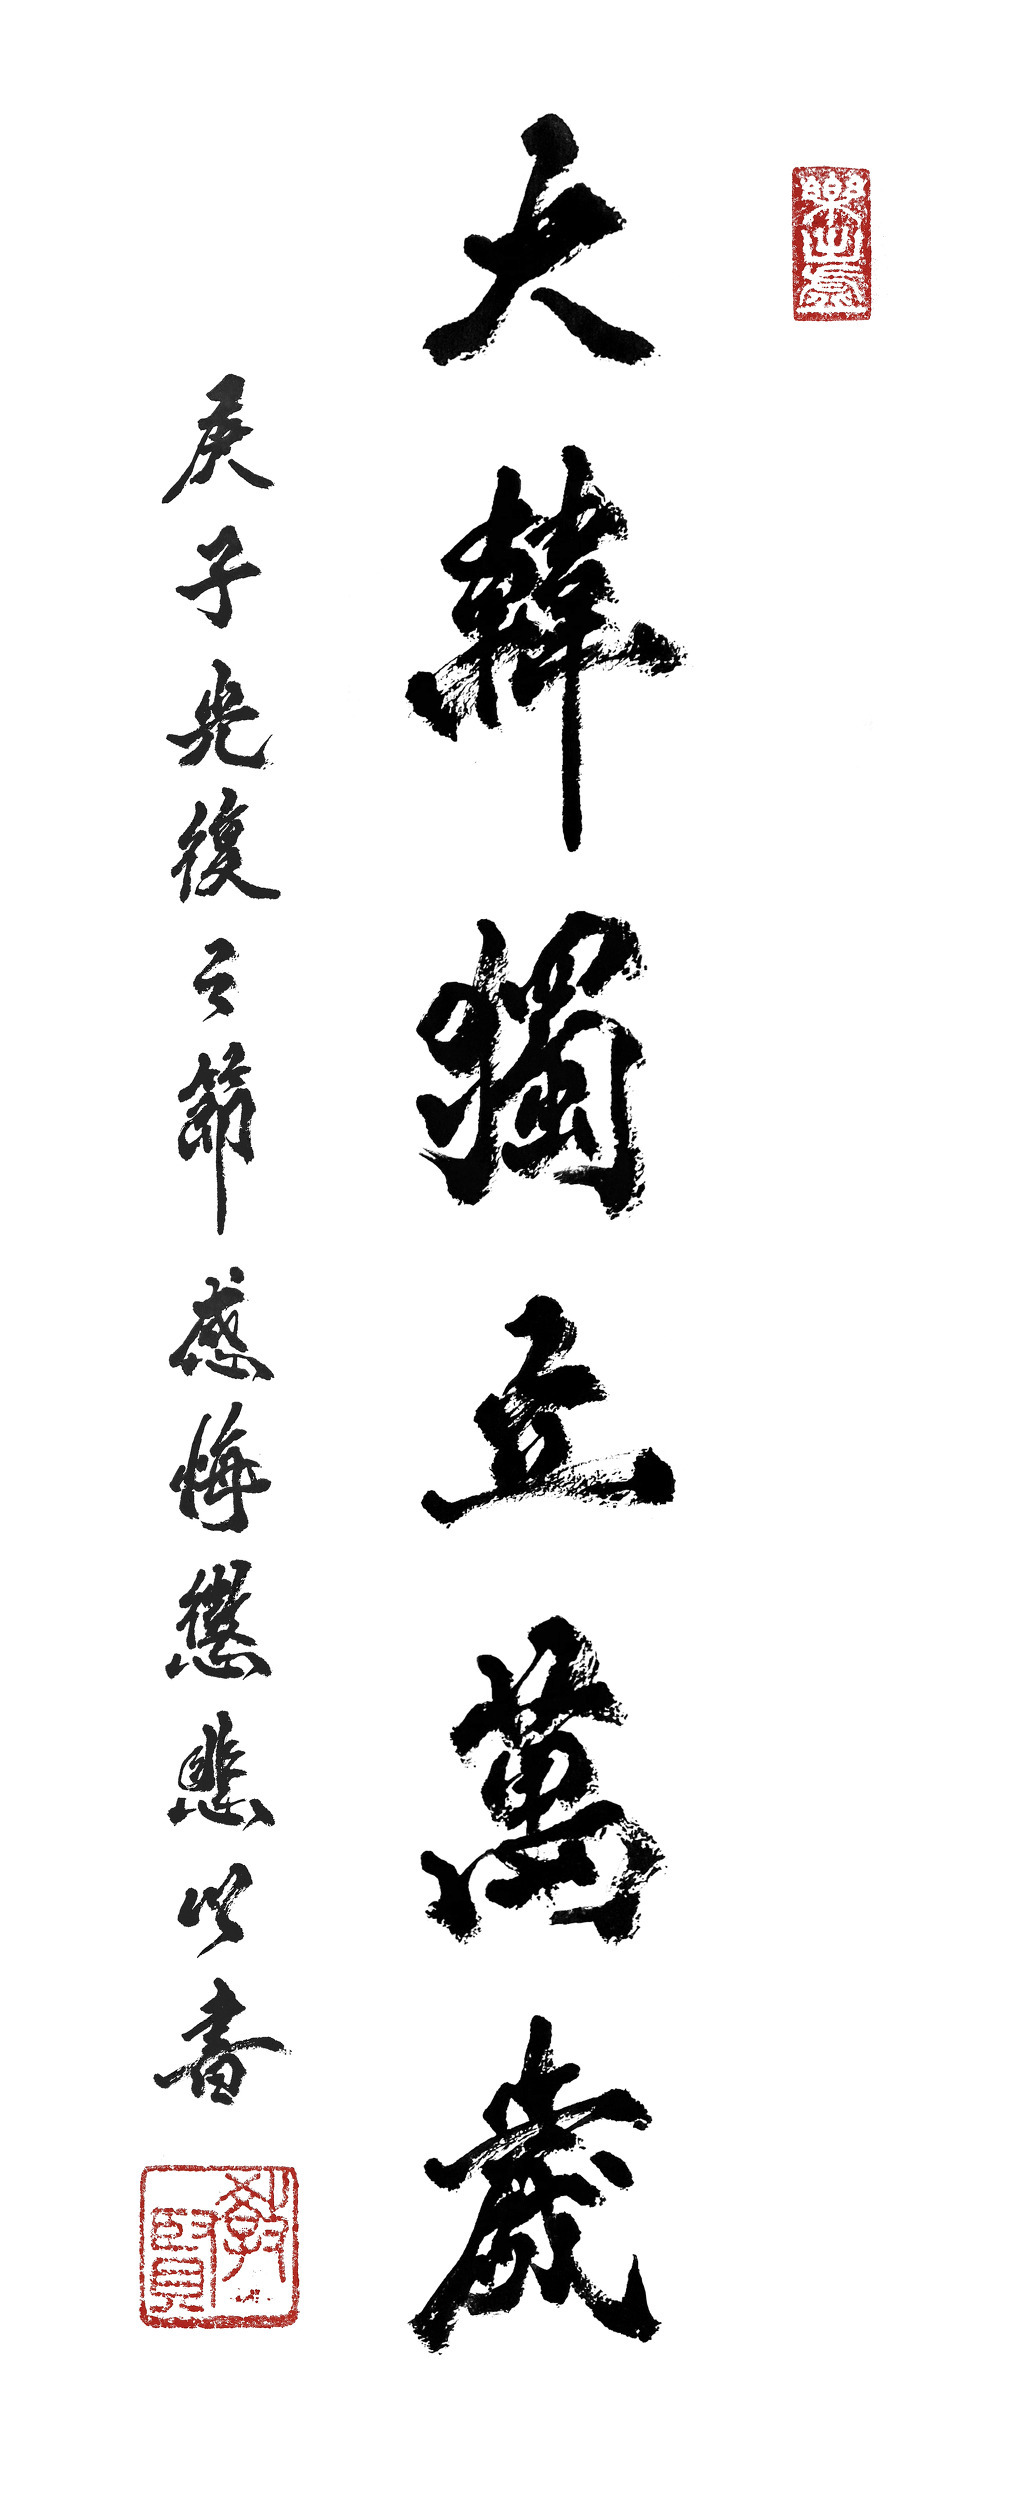 大韓獨立萬歲
庚子光復之節感悔懲悲以書